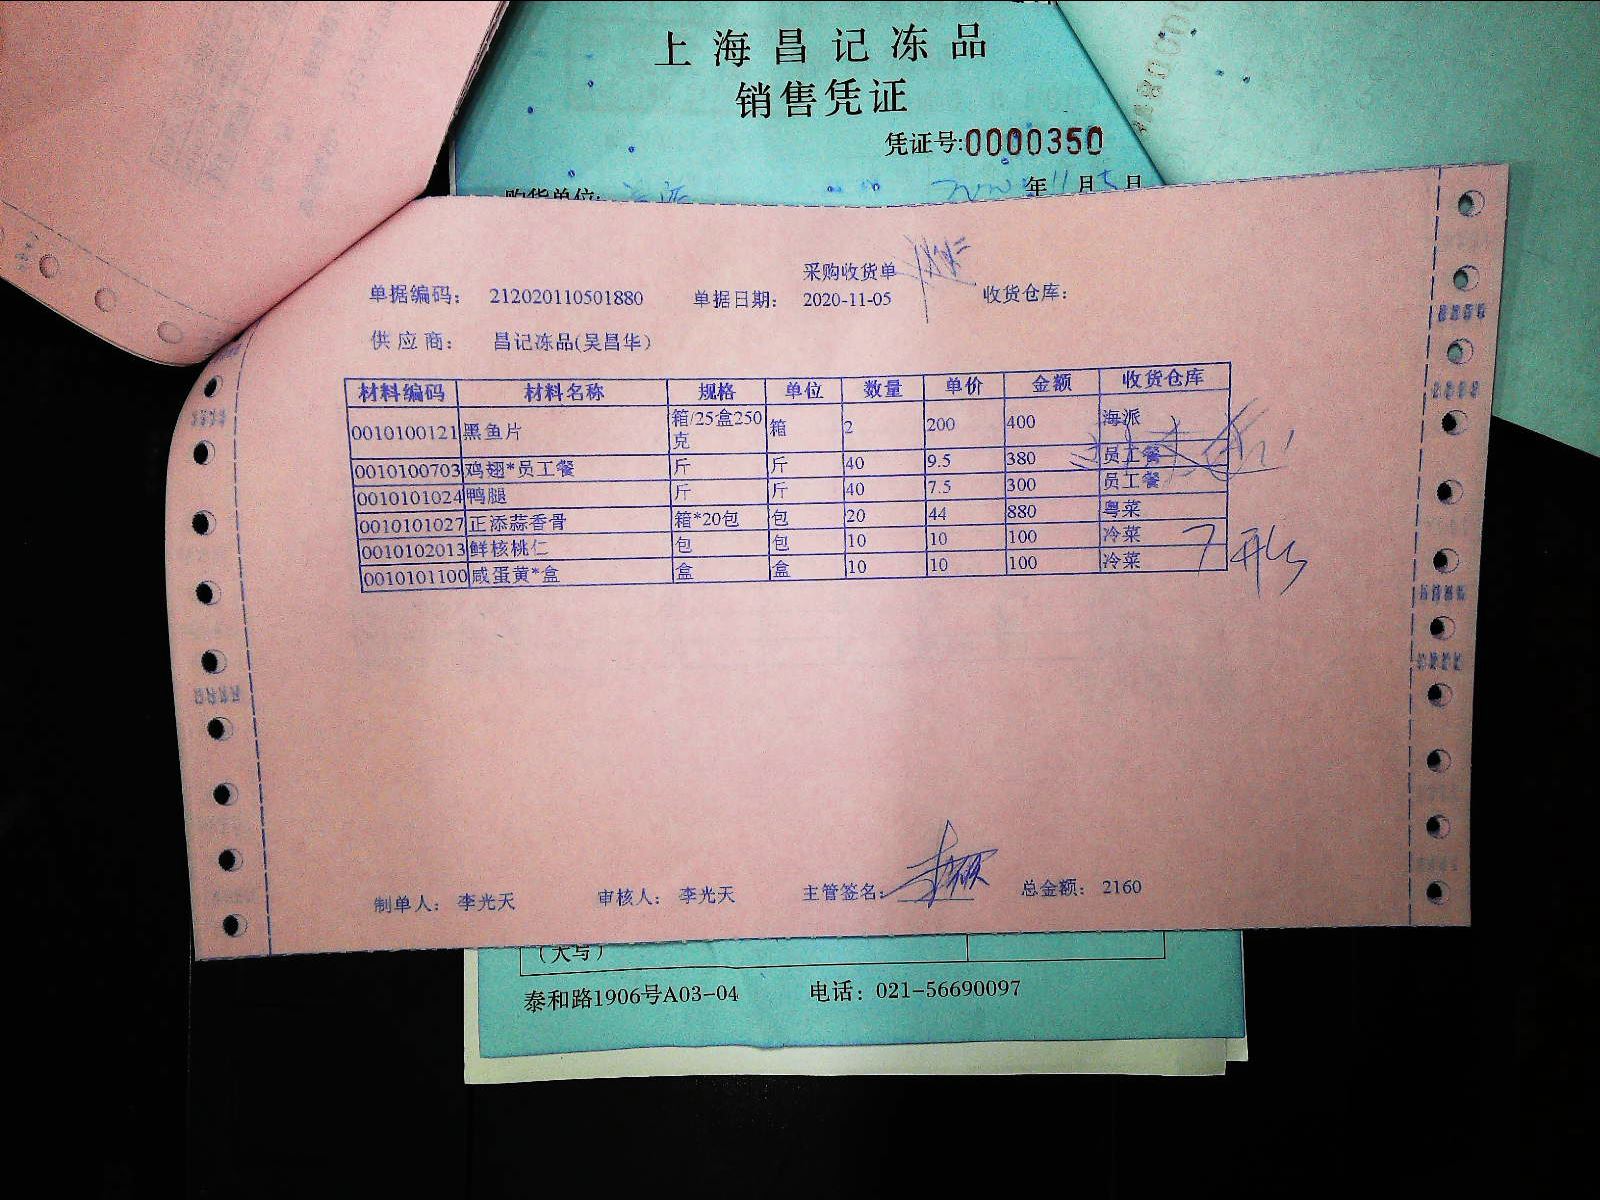 上海昌记冻品
销售凭证
凭证号:0000350
购货单位: 年11月5日
采购收货单
单据编码: 212020110501880 单据日期: 2020-11-05 收货仓库:
供应商: 昌记冻品(吴昌华)
材料编码 材料名称 规格 单位 数量 单价 金额 收货仓库
0010100121 黑鱼片 箱/25盒250克 箱 2 200 400 海派
0010100703 鸡翅*员工餐 斤 斤 40 9.5 380 员工餐
0010101024 鸭腿 斤 斤 40 7.5 300 员工餐
0010101027 正添蒜香骨 箱*20包 包 20 44 880 粤菜
0010102013 鲜核桃仁 包 包 10 10 100 冷菜
0010101100 咸蛋黄*盒 盒 盒 10 10 100 冷菜
制单人: 李光天 审核人: 李光天 主管签名: 总金额: 2160
(大写)
泰和路1906号A03-04 电话: 021-56690097